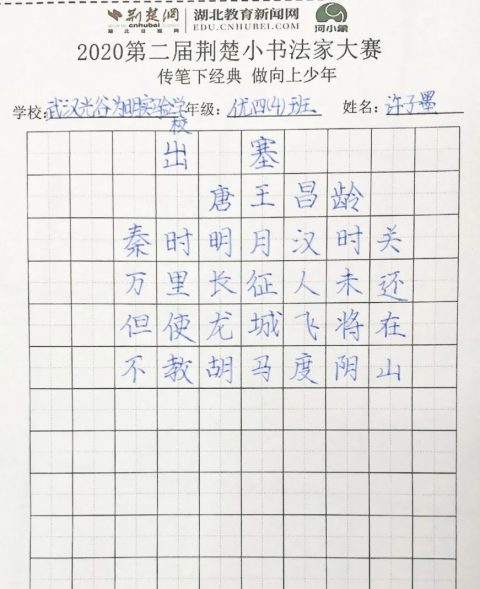 荆楚网 湖北教育新闻网 河小象
www.cnhubei.com EDU.CNHUBEI.COM
湖北日报网
2020第二届荆楚小书法家大赛
传笔下经典 做向上少年
学校:武汉光谷为明实验学校 年级:优四(4)班 姓名:许子墨
出塞
唐王昌龄
秦时明月汉时关
万里长征人未还
但使龙城飞将在
不教胡马度阴山